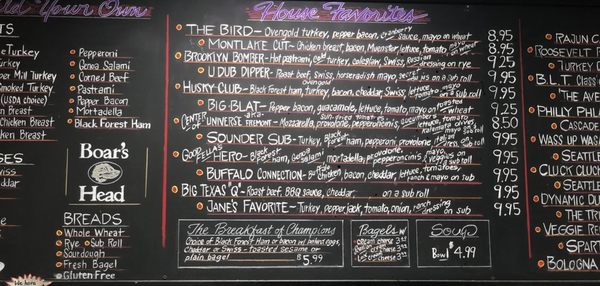 ld Your Own
Turkey
Turkey
Turkey
Mill Turkey
Smoked Turkey
(USDA choice)
Chicken
Chicken Breast
Chicken Breast
Swiss
Cheddar
Pepperoni
Genoa Salami
Corned Beef
Pastrami
Pepper Bacon
Mortadella
Black Forest Ham
Boar's
Head
BREADS
Whole Wheat
Rye Sub Roll
Sourdough
Fresh Bagel
Gluten Free
We have
House Favorites
THE BIRD - Ovengold turkey, pepper bacon, cranberry sauce, mayo on wheat 8.95
MONTLAKE CUT - Chicken breast, bacon, Muenster, lettuce, tomato, mayo on wheat 8.95
BROOKLYN BOMBER - Hot pastrami, turkey, coleslaw, Swiss, Russian dressing on rye 9.25
U DUB DIPPER - Roast beef, Swiss, horseradish mayo, au jus on a sub roll 9.95
HUSKY CLUB - Black Forest ham, Ovengold turkey, bacon, cheddar, Swiss, lettuce, mayo on a sub roll 9.95
BIG BLAT - Pepper bacon, guacamole, lettuce, tomato, mayo on toasted wheat 9.25
CENTER OF UNIVERSE aka FREMONT - Mozzarella, sun dried tomatoes, provolone, pepperoncinis, cucumbers, tomato, kalamata olives 8.50
SOUNDER SUB - Turkey, black forest ham, pepperoni, provolone, mayo on a sub roll 9.95
GOODFELLAS HERO - Black forest ham, Genoa salami, mortadella, provolone, pepperoncinis, mayo & veggies on a sub roll 9.95
BUFFALO CONNECTION - Buffalo chicken, bacon, cheddar, lettuce, tomatoes, ranch & mayo on sub roll 9.95
BIG TEXAS "Q" - Roast beef, BBQ sauce, cheddar, on a sub roll 9.95
JANE'S FAVORITE - Turkey, pepper jack, tomato, onion, ranch dressing on sub 9.95
The Breakfast of Champions
Choice of Black Forest Ham or bacon w/ eggs,
Cheddar or Swiss - Toasted sesame or
plain bagel $5.99
Bagels w/
cream cheese
Soup
Bowl $4.99
RAJUN CA
ROOSEVELT R
TURKEY C
B.L.T. Class
'THE AVE
PHILLY PHILA
CASCADE
WASS UP WASA
SEATTLE
CLUCK CLUCK
SEATTLE
DYNAMIC DU
THE TRI
VEGGIE RE
SPART
BOLOGNA